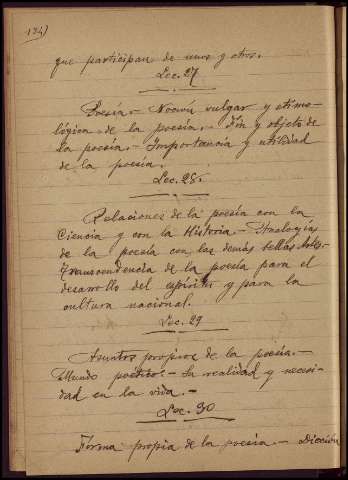 124)
que participan de unos y otros.
Lec. 27
Poesía.- Noción vulgar y etimo-
lógica de la poesía.- Fin y objeto de
la poesía.- Importancia y utilidad
de la poesía.
Lec. 28.
Relaciones de la poesía con la
Ciencia y con la Historia.- Analogías
de la poesía con las demás bellas Artes.-
Transcendencia de la poesía para el
desarrollo del espíritu y para la
cultura nacional.
Lec. 29
Asuntos propios de la poesía.-
Mundo poético.- Su realidad y necesi-
dad en la vida.-
Lec. 30
Forma propia de la poesía.- Dicción